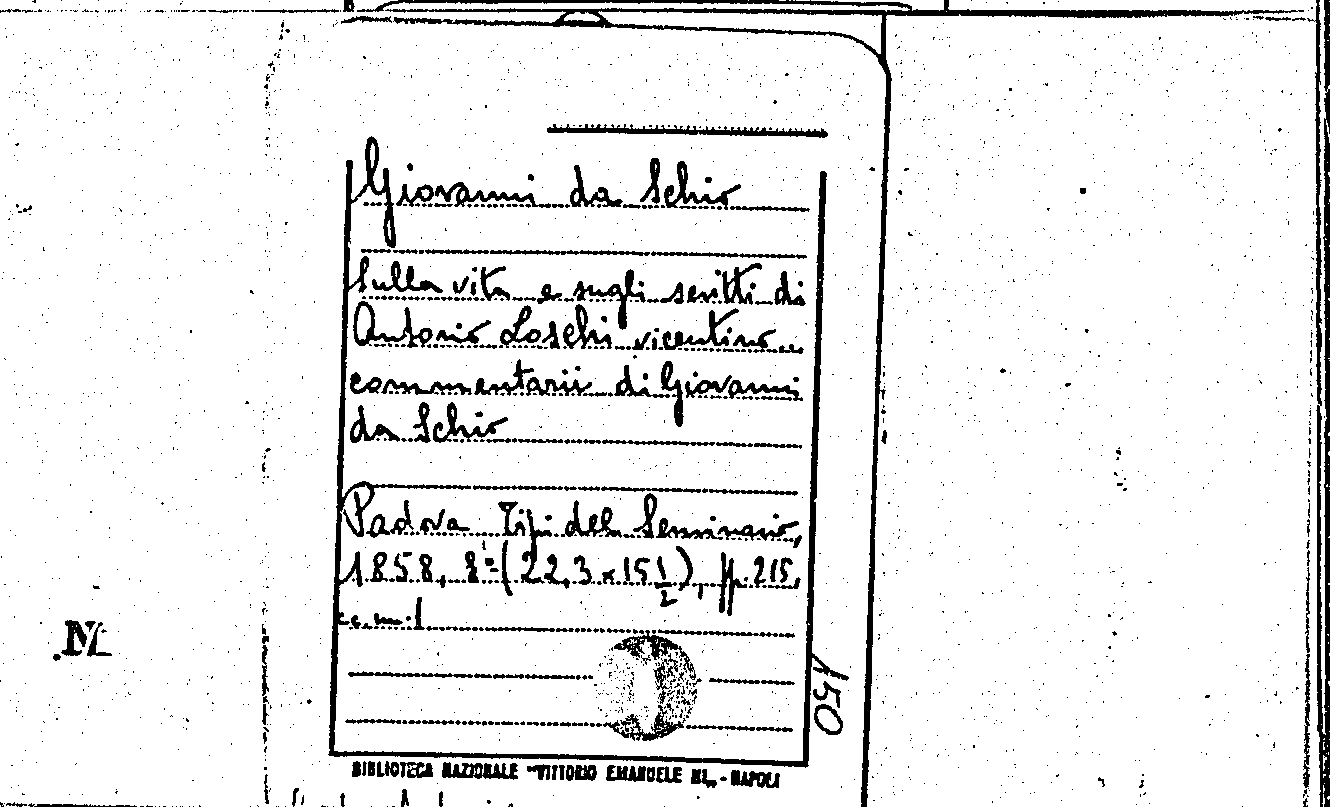 Giovanni da Schio
Sulla vita e sugli scritti di
Antonio Loschi vicentino..
commentarii di Giovanni
da Schio
Padova Tipi del Seminario,
1858, 8º (22,3 × 15 1/2), pp. 215,
cc.m.1
150
BIBLIOTECA NAZIONALE "VITTORIO EMANUELE III„ - NAPOLI